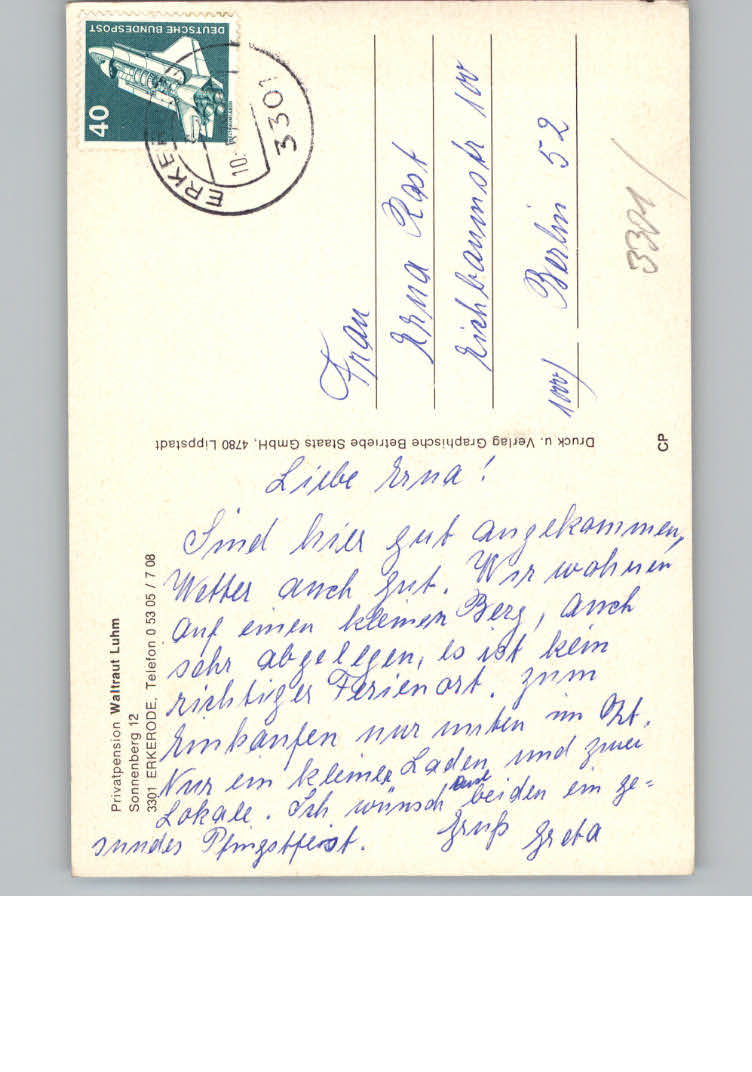 Privatpension Waltraut Luhm
Sonnenberg 12
3301 ERKERODE, Telefon 0 53 05 / 7 08
Liebe Erna!
Sind hier gut angekommen,
Wetter auch gut. Wir wohnen
auf einen kleinen Berg, auch
sehr abgelegen, es ist kein
richtiger Ferienort. zum
Einkaufen nur unten im Ort.
Nur ein kleiner Laden und zwei
Lokale. Ich wünsch Euch beiden ein ge=
sundes Pfingstfest.
Gruß Greta
Druck u. Verlag Graphische Betriebe Staats GmbH, 4780 Lippstadt
CP
DEUTSCHE BUNDESPOST
40
ERKE
3301
10.
Frau
Erna Rost
Eichbaumstr 100
1000/ Berlin 52
3301/